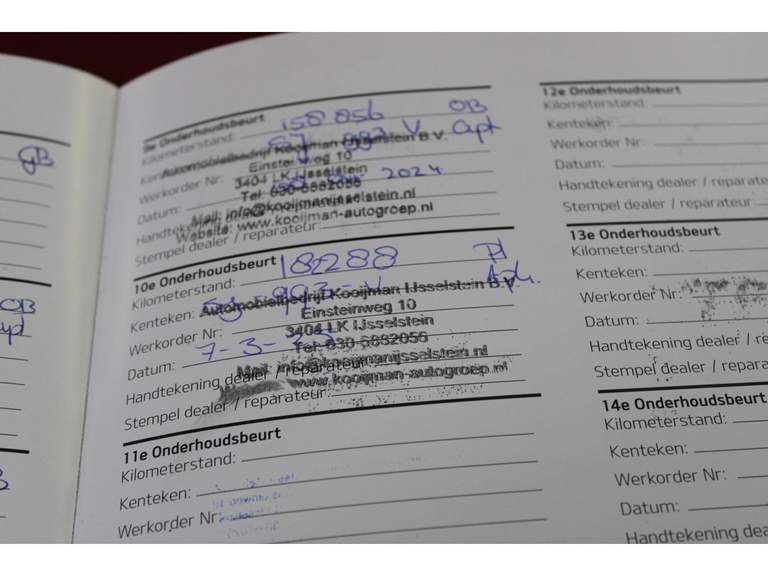 GB
OB
9e Onderhoudsbeurt
Kilometerstand: 158 056 OB
Kenteken: 993 V apt
Automobielbedrijf Kooijman IJsselstein B.V.
Einsteinweg 10
Werkorder Nr:
3404 LK IJsselstein
Datum: 2024
Tel: 030-6882056
Mail: info@kooijmanijsselstein.nl
Handtekening dealer / reparateur:
Website: www.kooijman-autogroep.nl
Stempel dealer / reparateur:
10e Onderhoudsbeurt
Kilometerstand: 182288
Kenteken: 993-V
Automobielbedrijf Kooijman IJsselstein B.V.
Einsteinweg 10
Werkorder Nr:
3404 LK IJsselstein
Datum: 7-3-
Tel: 030-6882056
Mail: info@kooijmanijsselstein.nl
Handtekening dealer / reparateur:
www.kooijman-autogroep.nl
Stempel dealer / reparateur:
11e Onderhoudsbeurt
Kilometerstand:
Kenteken:
Werkorder Nr:
12e Onderhoudsbeurt
Kilometerstand:
Kenteken:
Werkorder Nr:
Datum:
Handtekening dealer / reparate
Stempel dealer / reparateur:
13e Onderhoudsbeurt
Kilometerstand:
Kenteken:
Werkorder Nr:
Datum:
Handtekening dealer / re
Stempel dealer / repara
14e Onderhoudsbeurt
Kilometerstand:
Kenteken:
Werkorder Nr:
Datum:
Handtekening dea